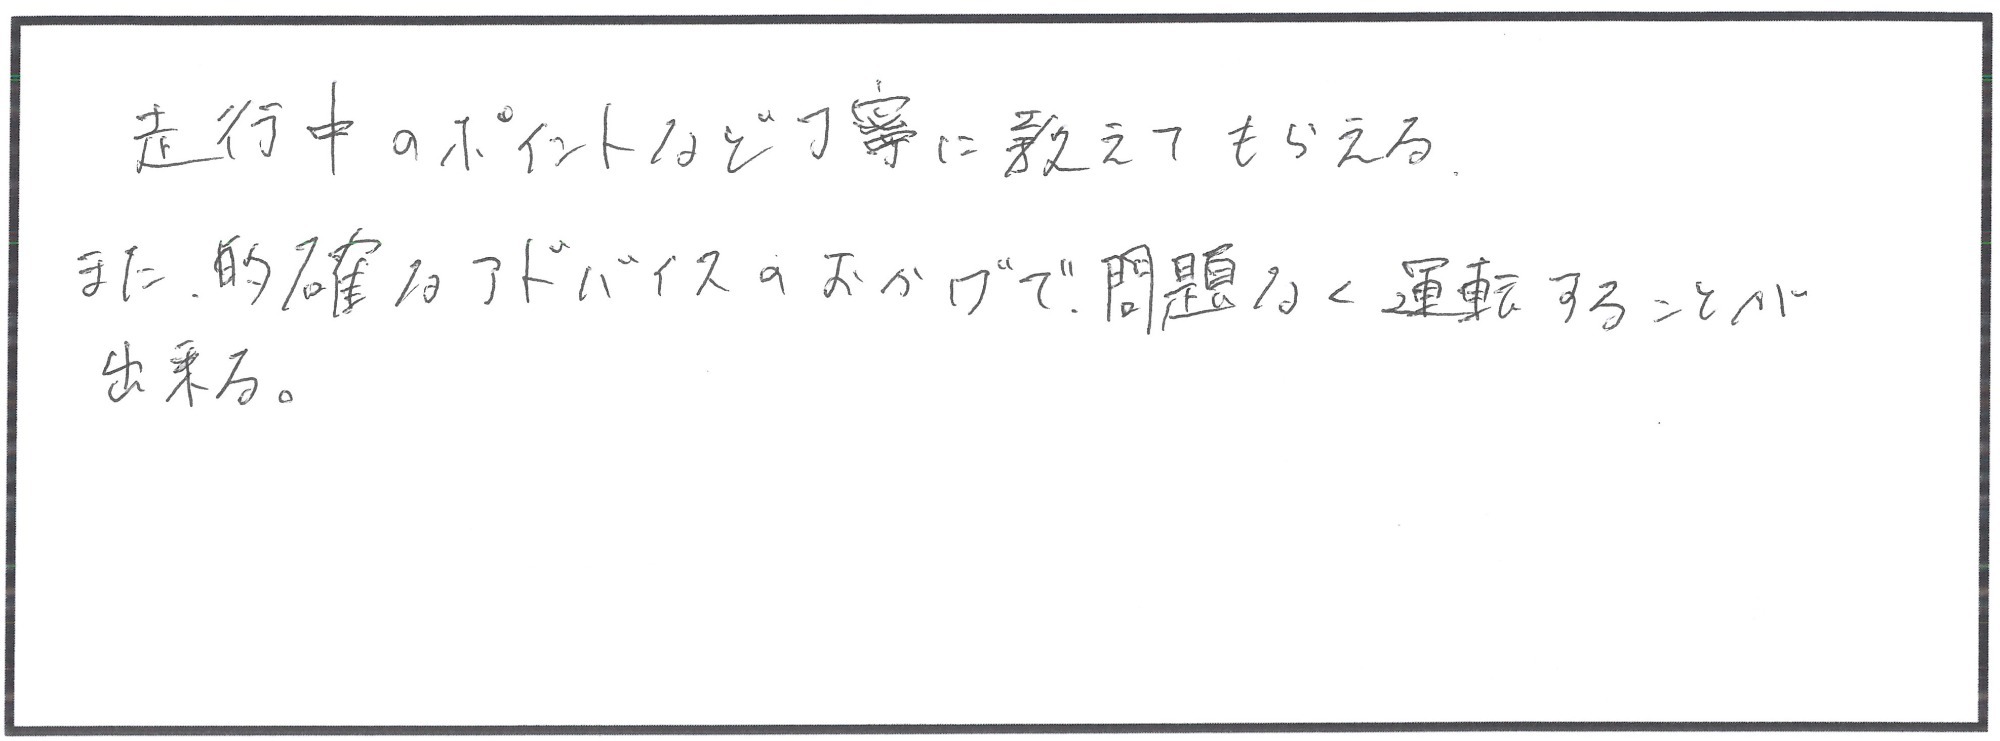 走行中のポイントなど丁寧に教えてもらえる.
また、的確なアドバイスのおかげで、問題なく運転することが
出来る。